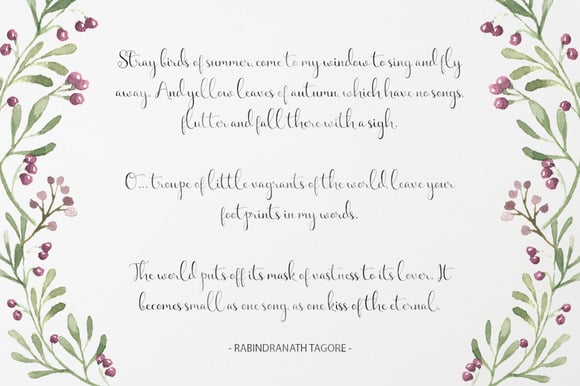 Stray birds of summer, come to my window to sing and fly
away. And yellow leaves of autumn, which have no songs,
flutter and fall there with a sigh.
O... troupe of little vagrants of the world leave your
footprints in my words.
The world puts off its mask of vastness to its lover. It
becomes small as one song, as one kiss of the eternal.
- RABINDRANATH TAGORE -